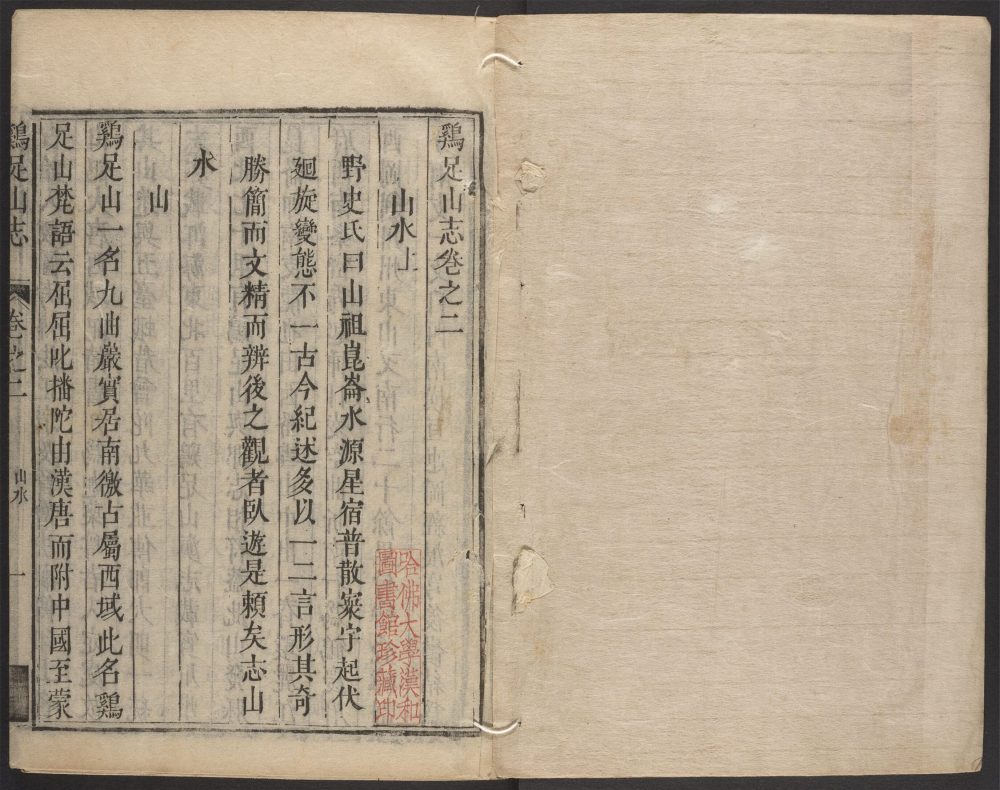 鷄足山志卷之二
山水上
野史氏曰山祖崑崙水源星宿普散寰宇起伏
廻旋變態不一古今紀述多以一二言形其奇
勝簡而文精而辨後之觀者臥遊是賴矣志山
水
山
鷄足山一名九曲巖實居南徼古屬西域此名鷄
足山梵語云屈屈叱播陀山漢唐而附中國至蒙
鷄足山志
卷之二
山水
一
哈佛大學漢和
圖書館珍藏印